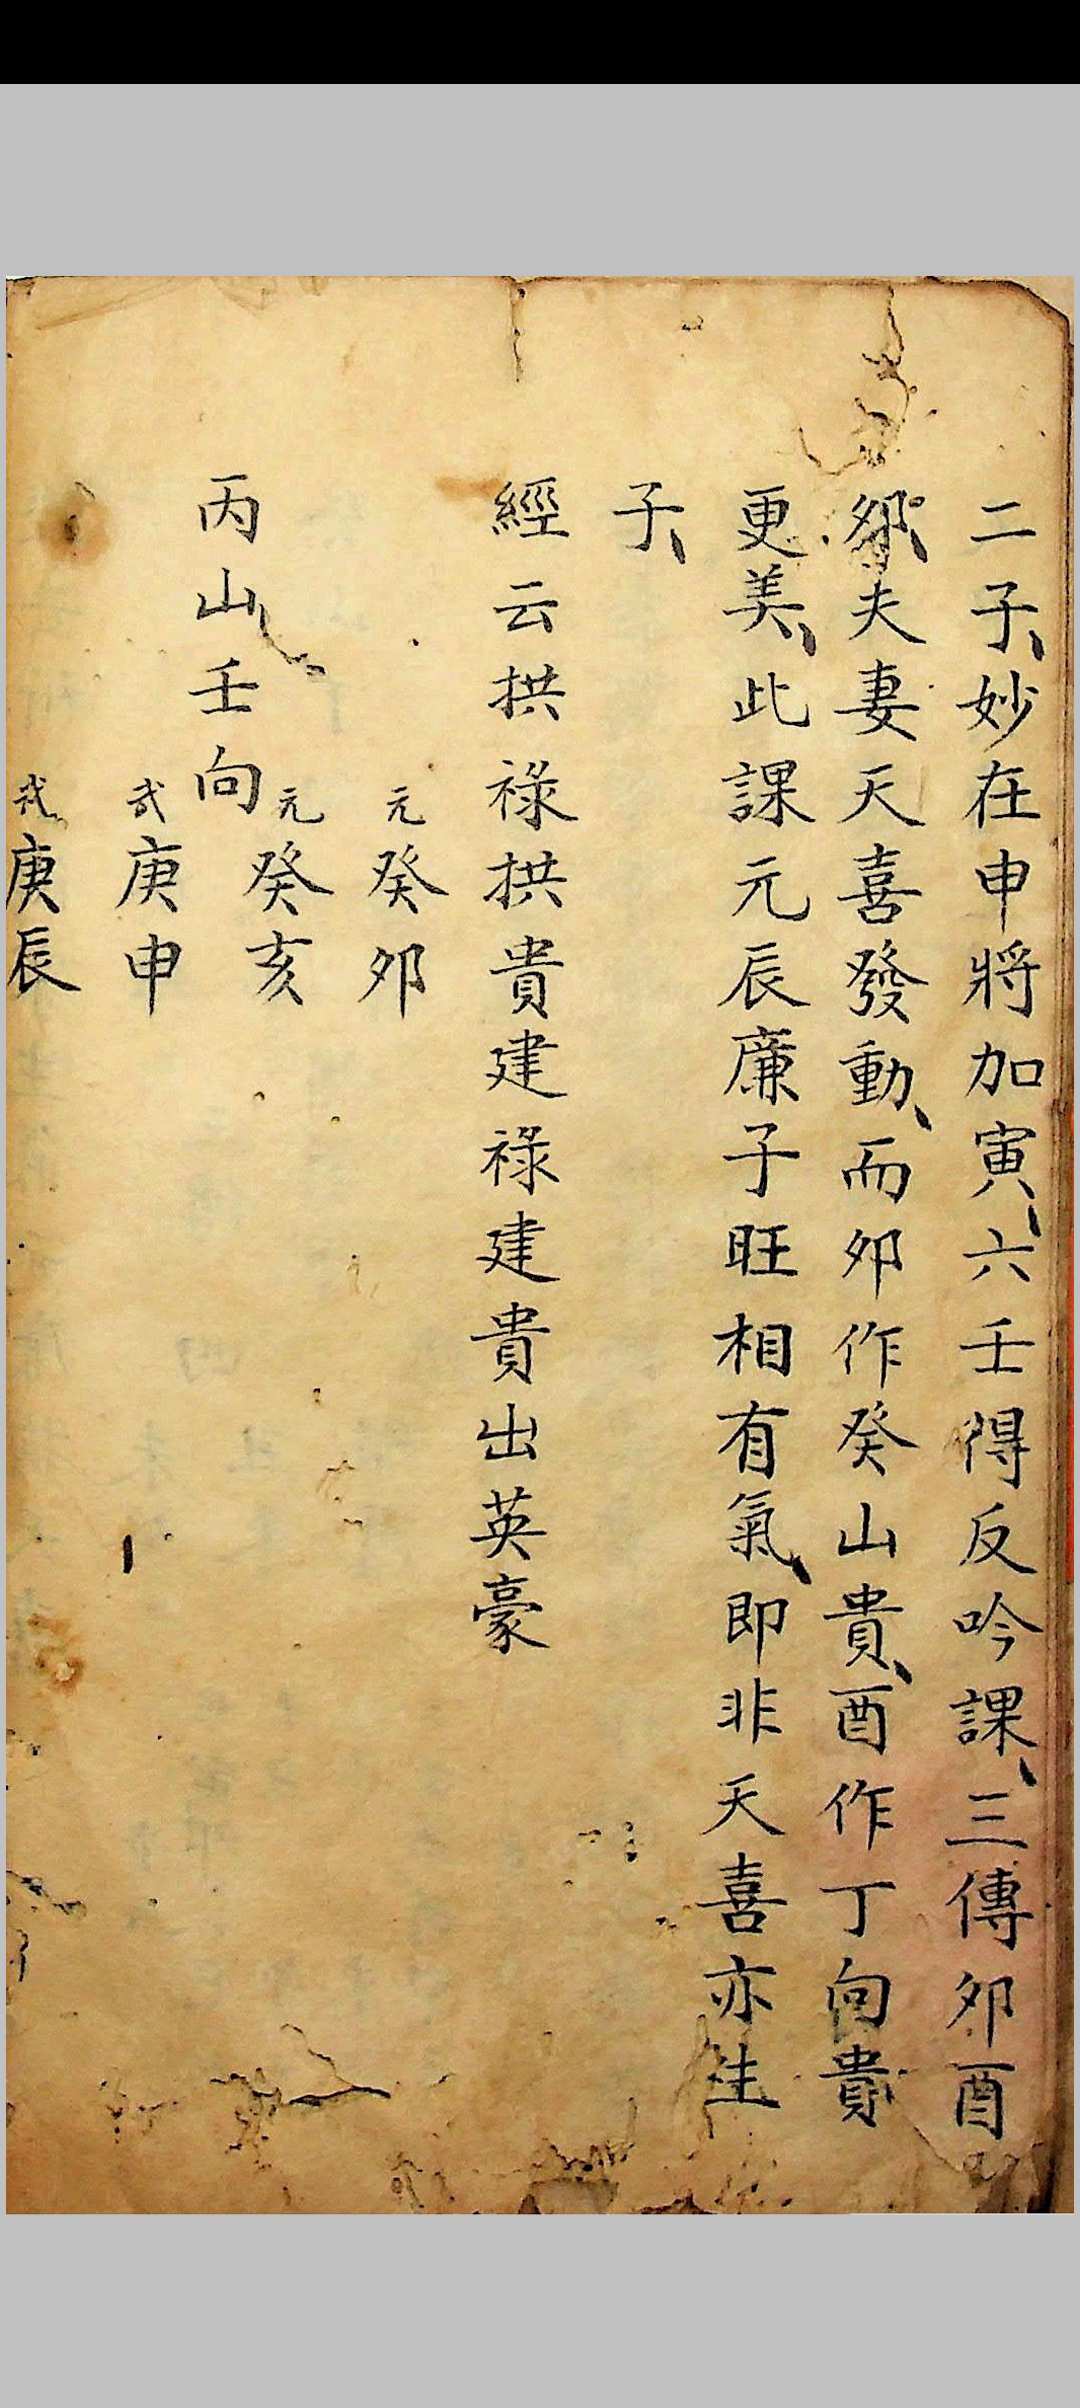 二子、妙在申將加寅、六壬得反吟課、三傳夘酉
夘、夫妻天喜發動、而夘作癸山貴、酉作丁向貴
更美、此課元辰廉子旺相有氣、即非天喜亦生
子、
經云拱祿拱貴建祿建貴出英豪
元癸夘
元癸亥
丙山壬向
弍庚申
弍庚辰